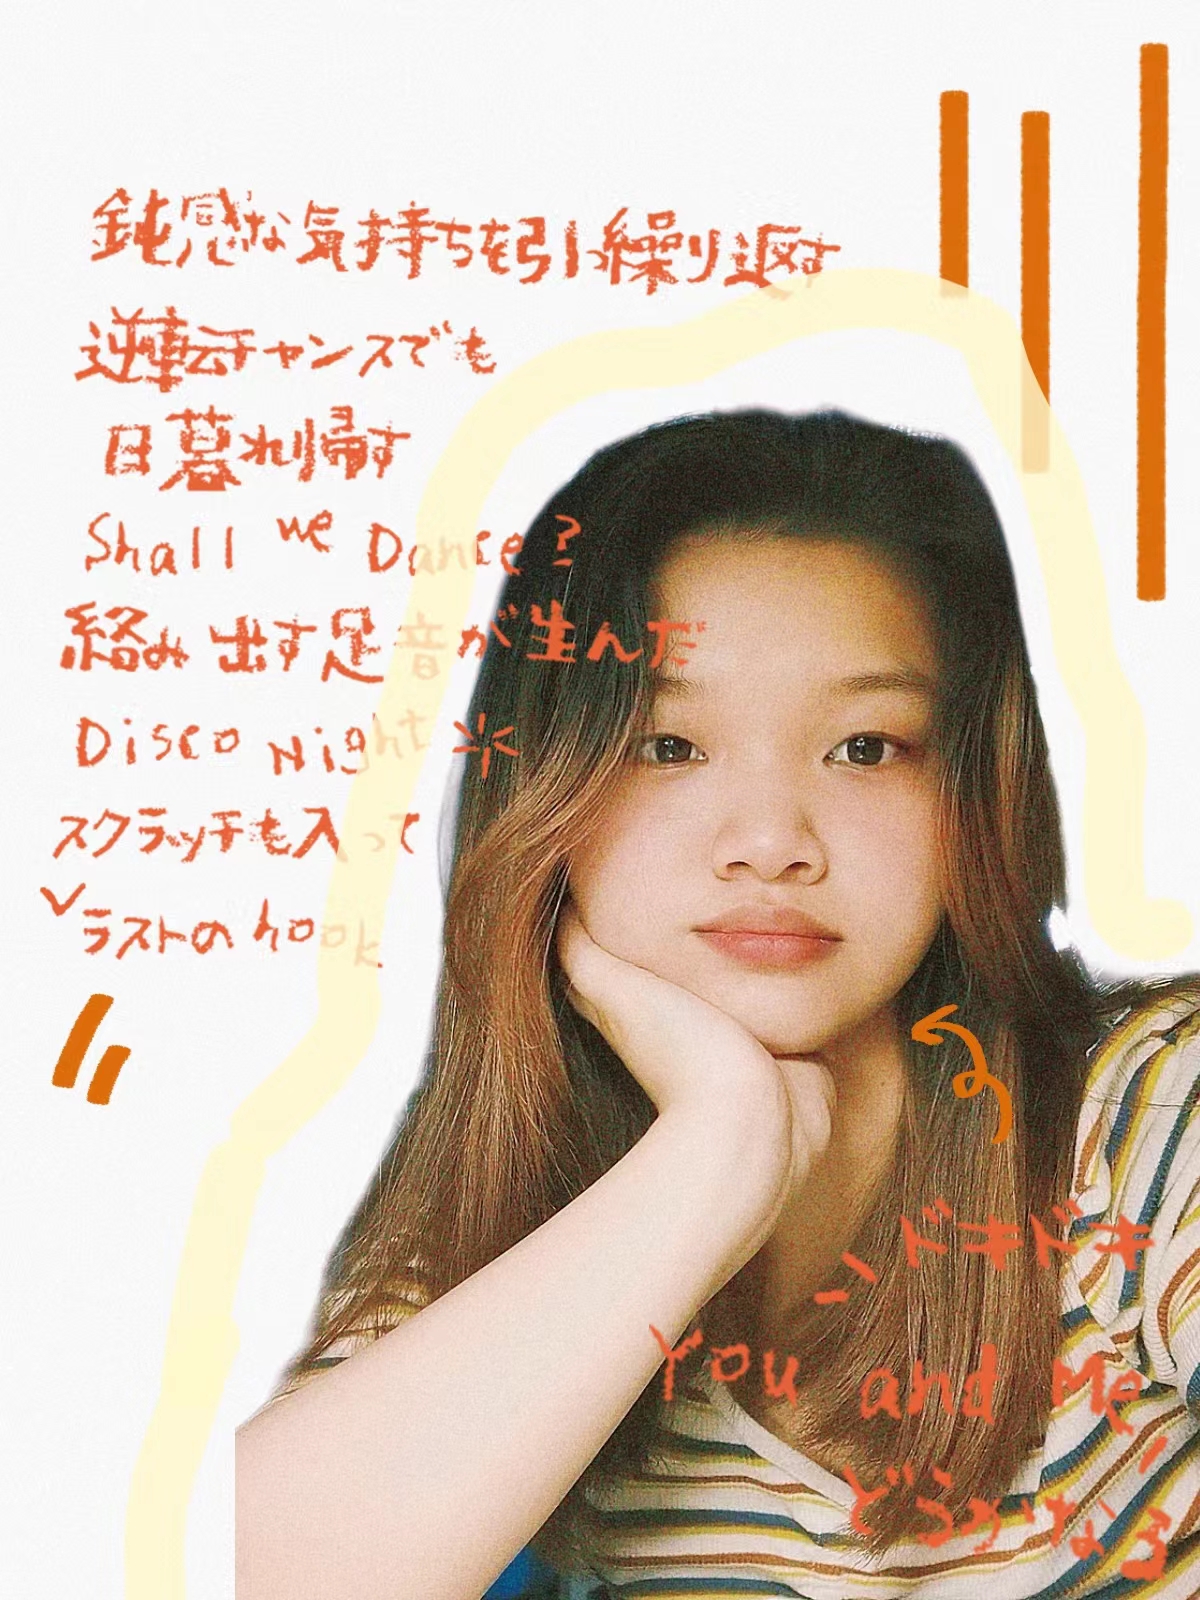 鈍感な気持ちを引っ繰り返す
逆転チャンスでも
日暮れ帰す
Shall we Dance?
絡み出す足音が生んだ
Disco Night
スクラッチも入って
ラストのhook
ドキドキ
You and Me
どうかなる